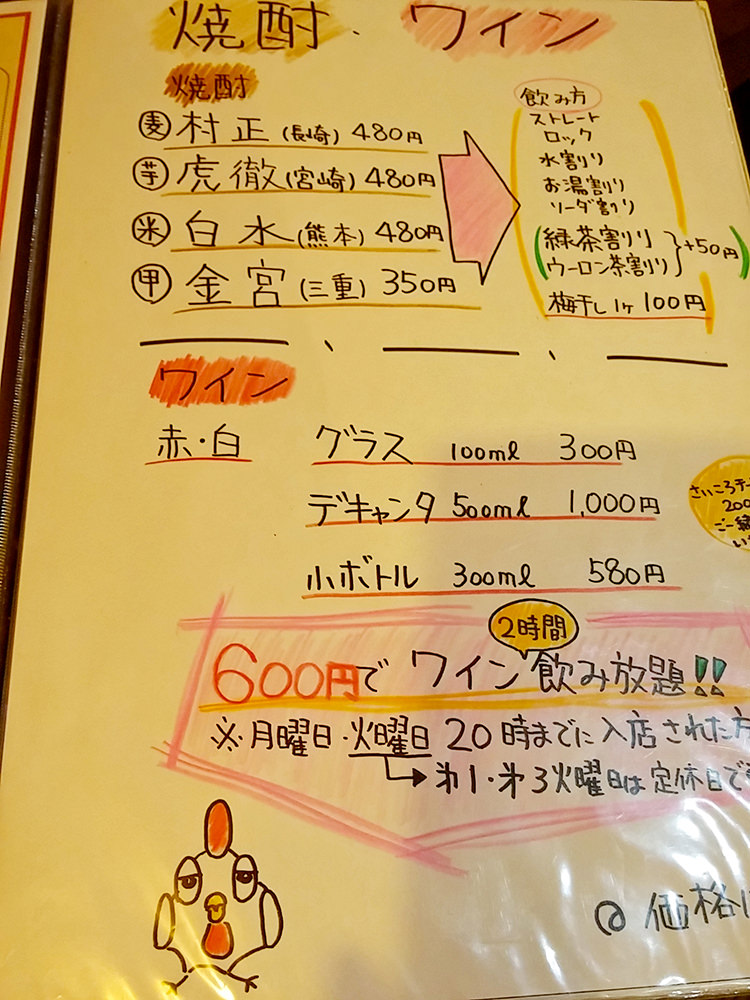 焼酎・ワイン
焼酎
麦 村正(長崎) 480円
芋 虎徹(宮崎) 480円
米 白水(熊本) 480円
甲 金宮(三重) 350円
飲み方
ストレート
ロック
水割り
お湯割り
ソーダ割り
(緑茶割り
ウーロン茶割り}+50円)
梅干し1ヶ 100円
ワイン
赤・白 グラス 100ml 300円
デキャンタ 500ml 1,000円
小ボトル 300ml 580円
さいころチ
200
ご一緒
い
2時間
600円で ワイン飲み放題!!
※月曜日・火曜日 20時までに入店された方
→第1・第3火曜日は定休日で
価格